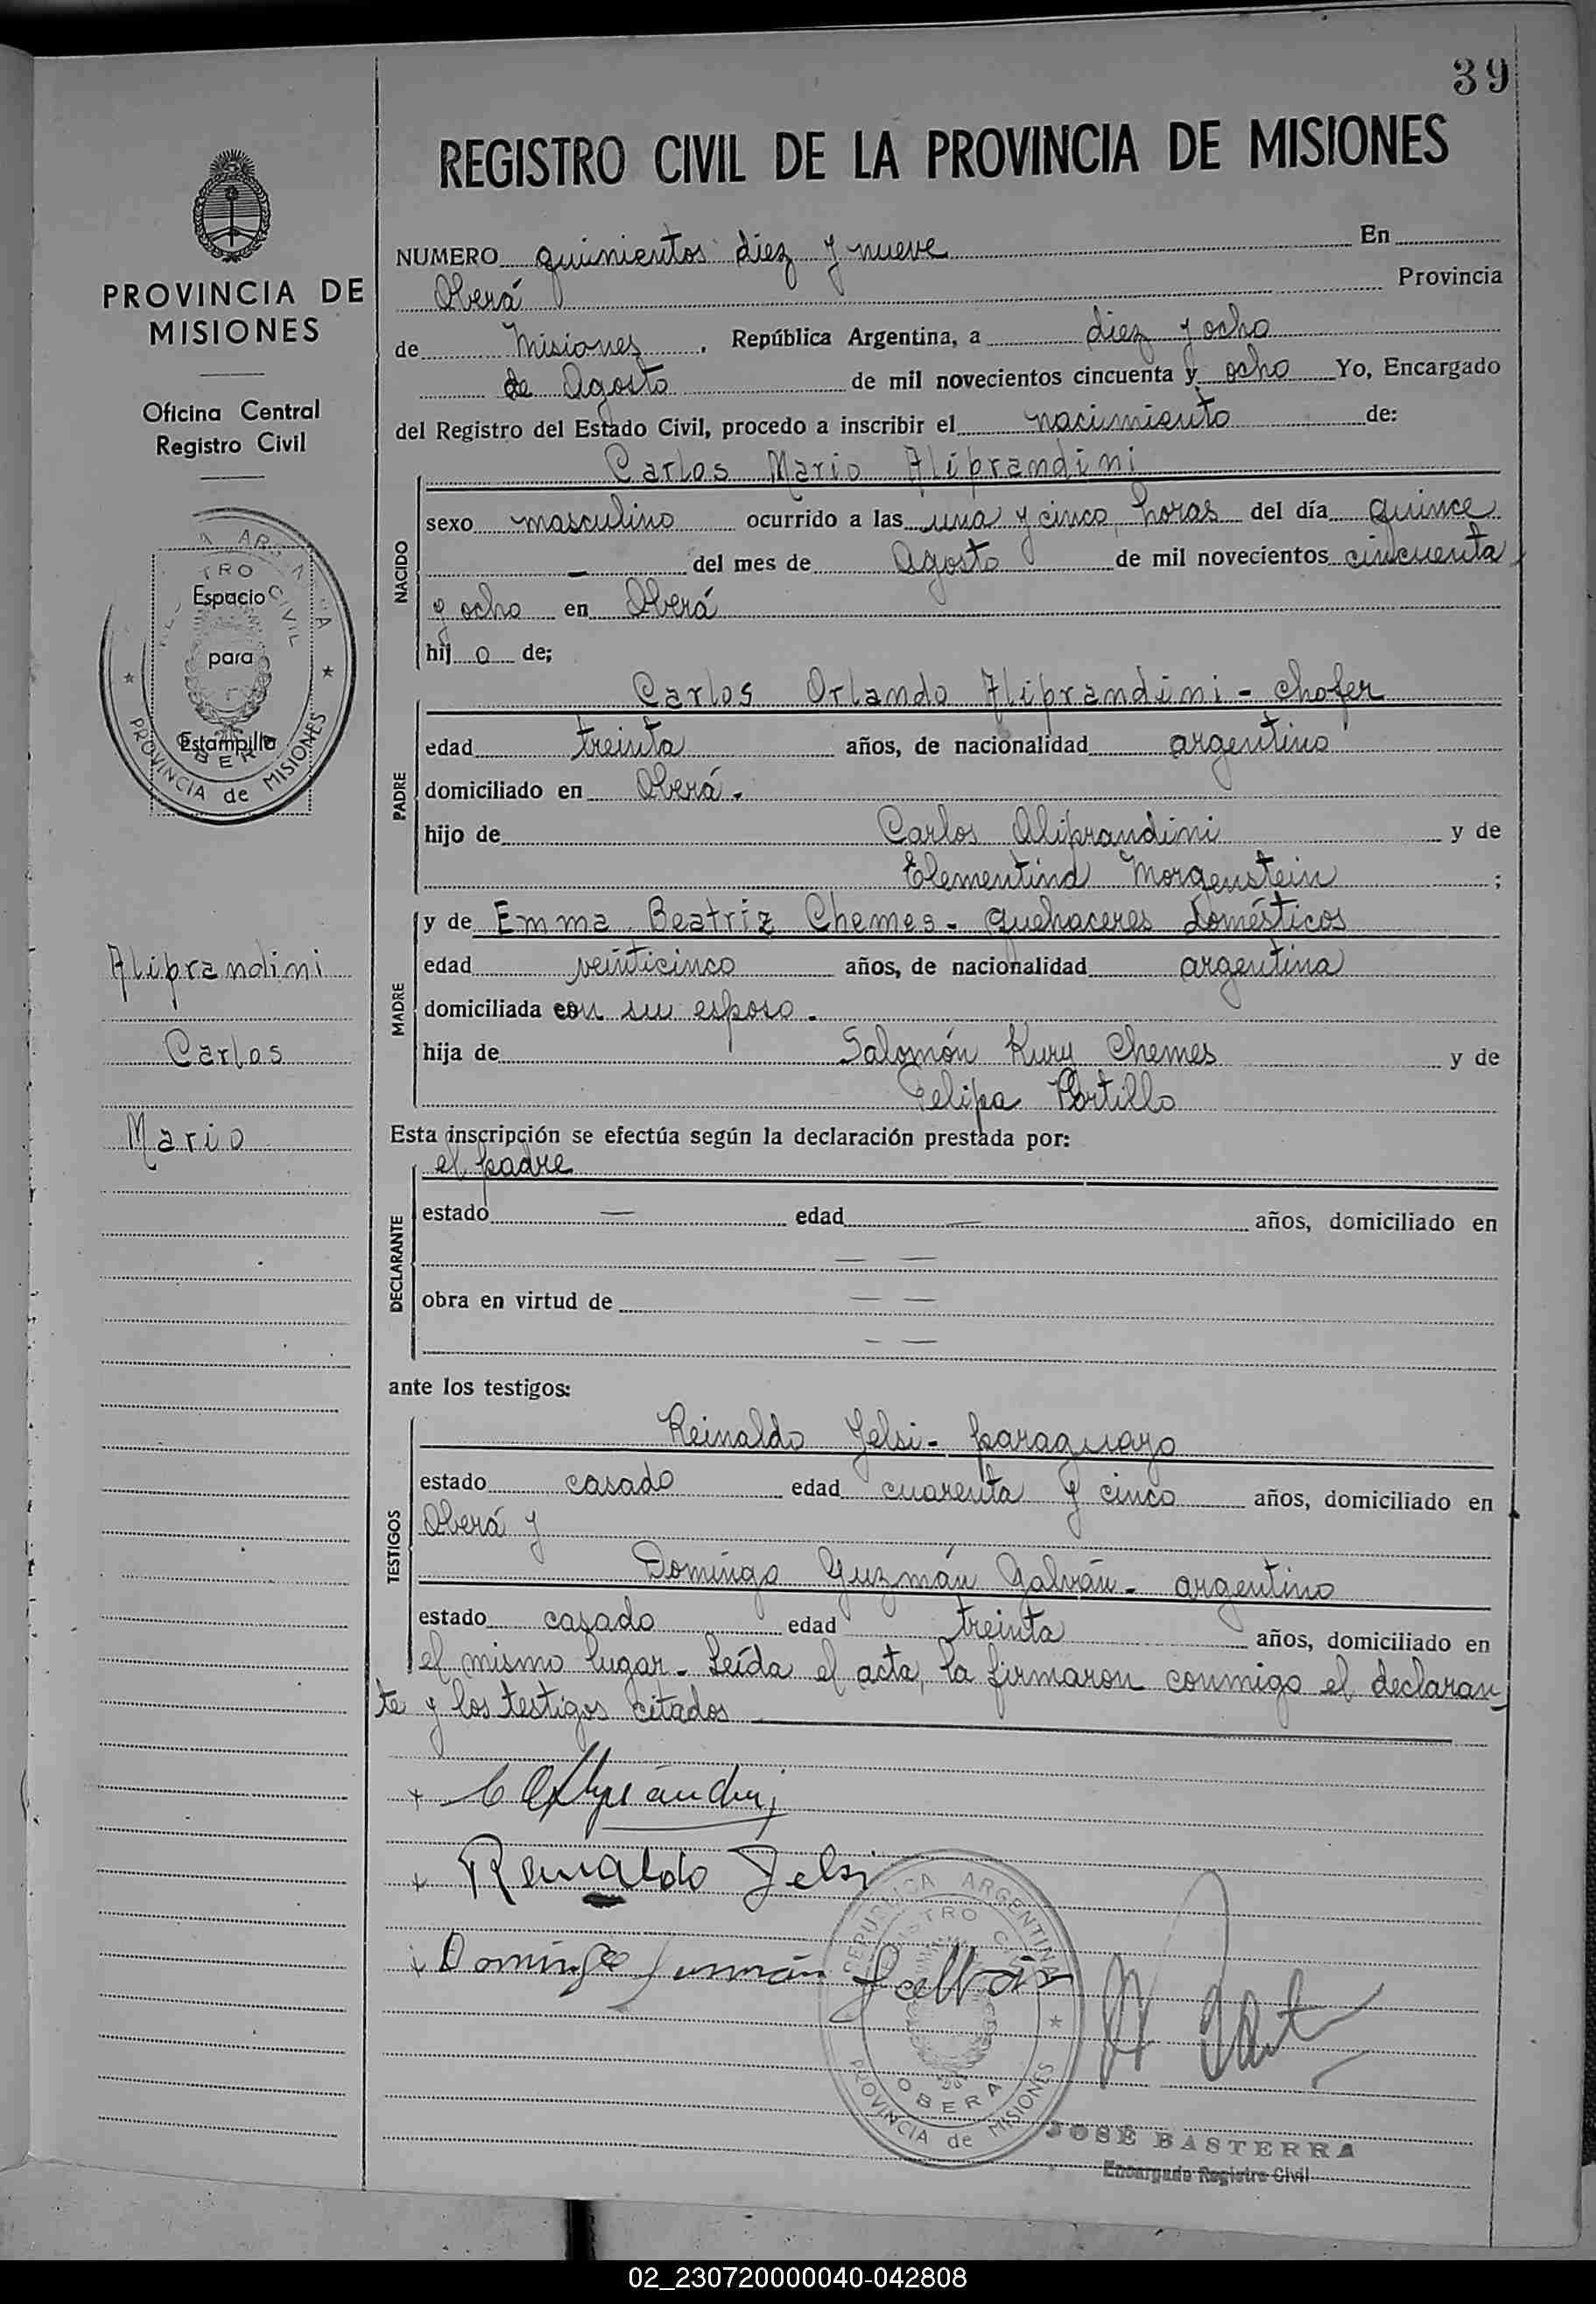 39
REGISTRO CIVIL DE LA PROVINCIA DE MISIONES
PROVINCIA DE
MISIONES
Oficina Central
Registro Civil
Espacio
para
Estampilla
PROVINCIA de MISIONES
Aliprandini
Carlos
Mario
NUMERO quinientos diez y nueve En
Oberá Provincia
de Misiones, República Argentina, a diez y ocho
de Agosto de mil novecientos cincuenta y ocho Yo, Encargado
del Registro del Estado Civil, procedo a inscribir el nacimiento de:
Carlos Mario Aliprandini
NACIDO
sexo masculino ocurrido a las una y cinco horas del día quince
— del mes de Agosto de mil novecientos cincuenta
y ocho en Oberá
hij o de;
Carlos Orlando Aliprandini - chofer
PADRE
edad treinta años, de nacionalidad argentino
domiciliado en Oberá.
hijo de Carlos Aliprandini y de
Clementina Morgenstein ;
MADRE
y de Emma Beatriz Chemes - quehaceres domésticos
edad veinticinco años, de nacionalidad argentina
domiciliada con su esposo.
hija de Salomón Kury Chemes y de
Felipa Portillo
Esta inscripción se efectúa según la declaración prestada por:
el padre
DECLARANTE
estado — edad — años, domiciliado en
— —
obra en virtud de — —
— —
ante los testigos:
Reinaldo Jelsi - paraguayo
TESTIGOS
estado casado edad cuarenta y cinco años, domiciliado en
Oberá y
Domingo Guzmán Galván - argentino
estado casado edad treinta años, domiciliado en
el mismo lugar - Leída el acta, la firmaron conmigo el declaran
te y los testigos citados
C Aliprandini
Reinaldo Jelsi
Domingo Guzmán Galván
REPUBLICA ARGENTINA
REGISTRO CIVIL
OBERA
PROVINCIA de MISIONES
JOSE BASTERRA
Encargado Registro Civil
02_230720000040-042808